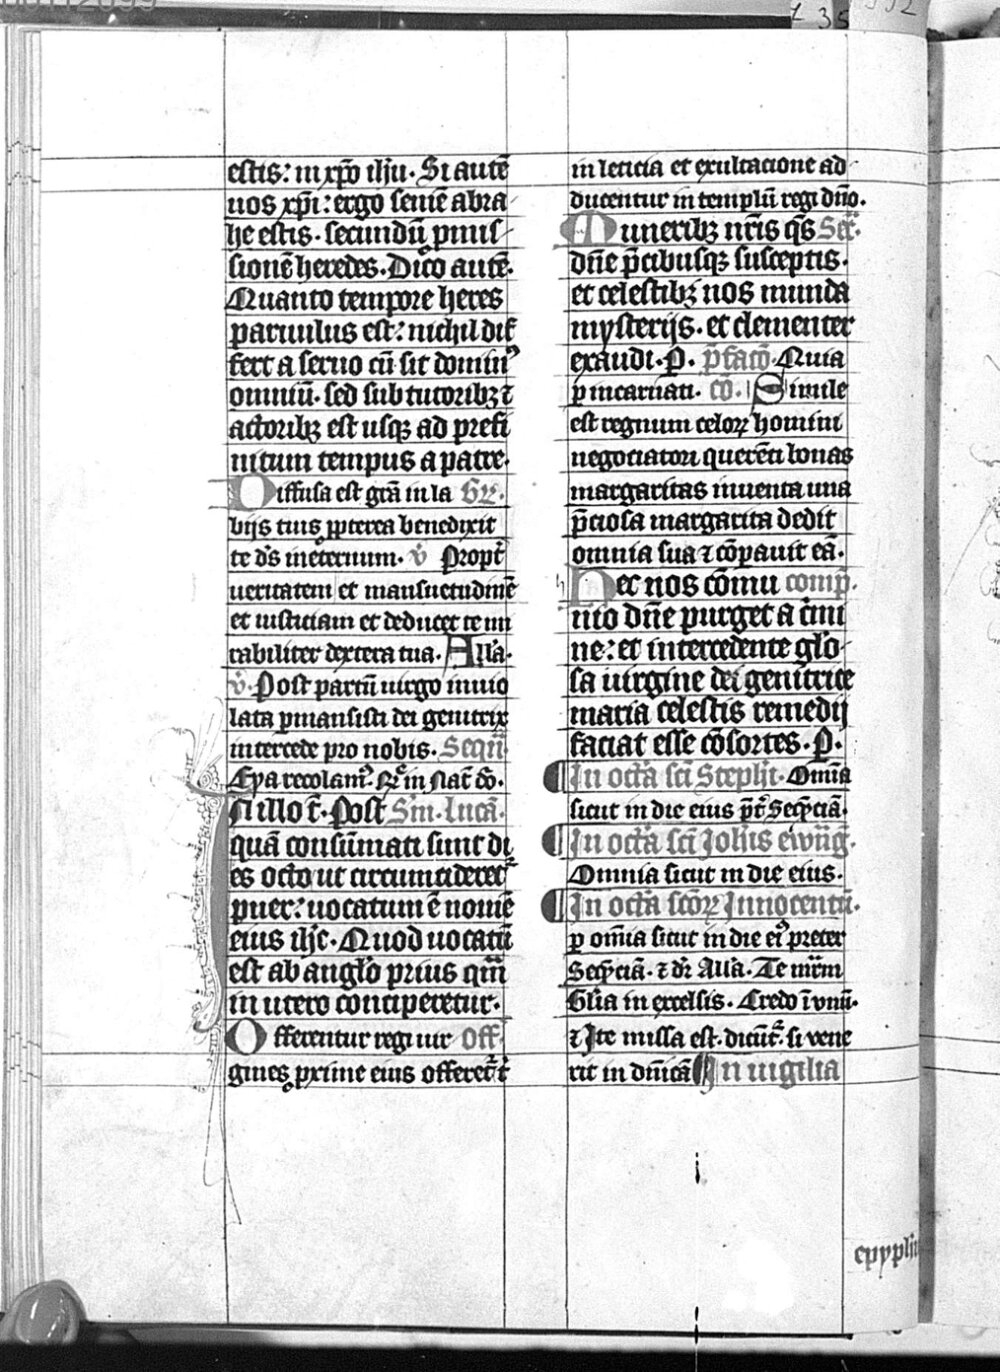 estis: in xp̄o ih̄u. Si autē
uos xp̄i: ergo semē abra
he estis. secundū pmis
sionē heredes. Dico autē.
Quanto tempore heres
paruulus est: nichil dif
fert a seruo cū sit domin⁹
omniū. sed sub tutoribꝫ ⁊
actoribꝫ est usqꝫ ad prefi
nitum tempus a patre.
Diffusa est grā in la Gr̄.
bijs tuis ꝓpterea benedixit
te ds̄ in eternum. v̄ Propt̄
ueritatem et mansuetudinē
et iusticiam et deducet te mi
rabiliter dextera tua. All'a.
v̄. Post partū uirgo inuio
lata ꝑmansisti dei genitrix
intercede pro nobis. Sequn̄
Eya recolam⁹. Rͤ in Nat̄ dō.
In illo t̄. Post Sm̄. Lucā.
quā consūmati sunt di
es octo ut circumcideret᷑
puer: uocatum ē nomē
eius ih̄c. Quod uocatū
est ab angl'o prius qm̄
in utero conciperetur.
Offerentur regi uir Off
gines ꝓxime eius offerēt᷑ t̄
in leticia et exultacione ad
ducentur in templū regi dn̄o.
Muneribꝫ nr̄is qs̄ Secr̄.
dn̄e p̄cibusqꝫ susceptis.
et celestibꝫ nos munda
mysterijs. et clementer
exaudi. P. p̄facō. Quia
ꝑ incarnati. cō. Simile
est regnum celoꝝ homini
negociatori querēti bonas
margaritas inuenta una
p̄ciosa margarita dedit
omnia sua ⁊ cōpauit eā.
Hec nos cōmu comp̄.
nio dn̄e purget a c̄mi
ne: et intercedente glo
sa uirgine dei genitrice
maria celestis remedij
faciat esse cōsortes. P.
In octā sc̄i Steph̄i. Omīa
sicut in die eius p̄t Seq̄ciā.
In octā sc̄i Joh̄is ewāḡ.
Omnia sicut in die eius.
In octā sc̄oꝝ Innocentū.
ꝑ om̄ia sicut in die ei⁹ preter
Seq̄ciā. ⁊ dr̄ All'a. Te mr̄m
Gl'ia in excelsis. Credo ī vnū.
⁊ Ite missa est. dicūt᷑. si vene
rit in dn̄icā In uigilia
epyph̄